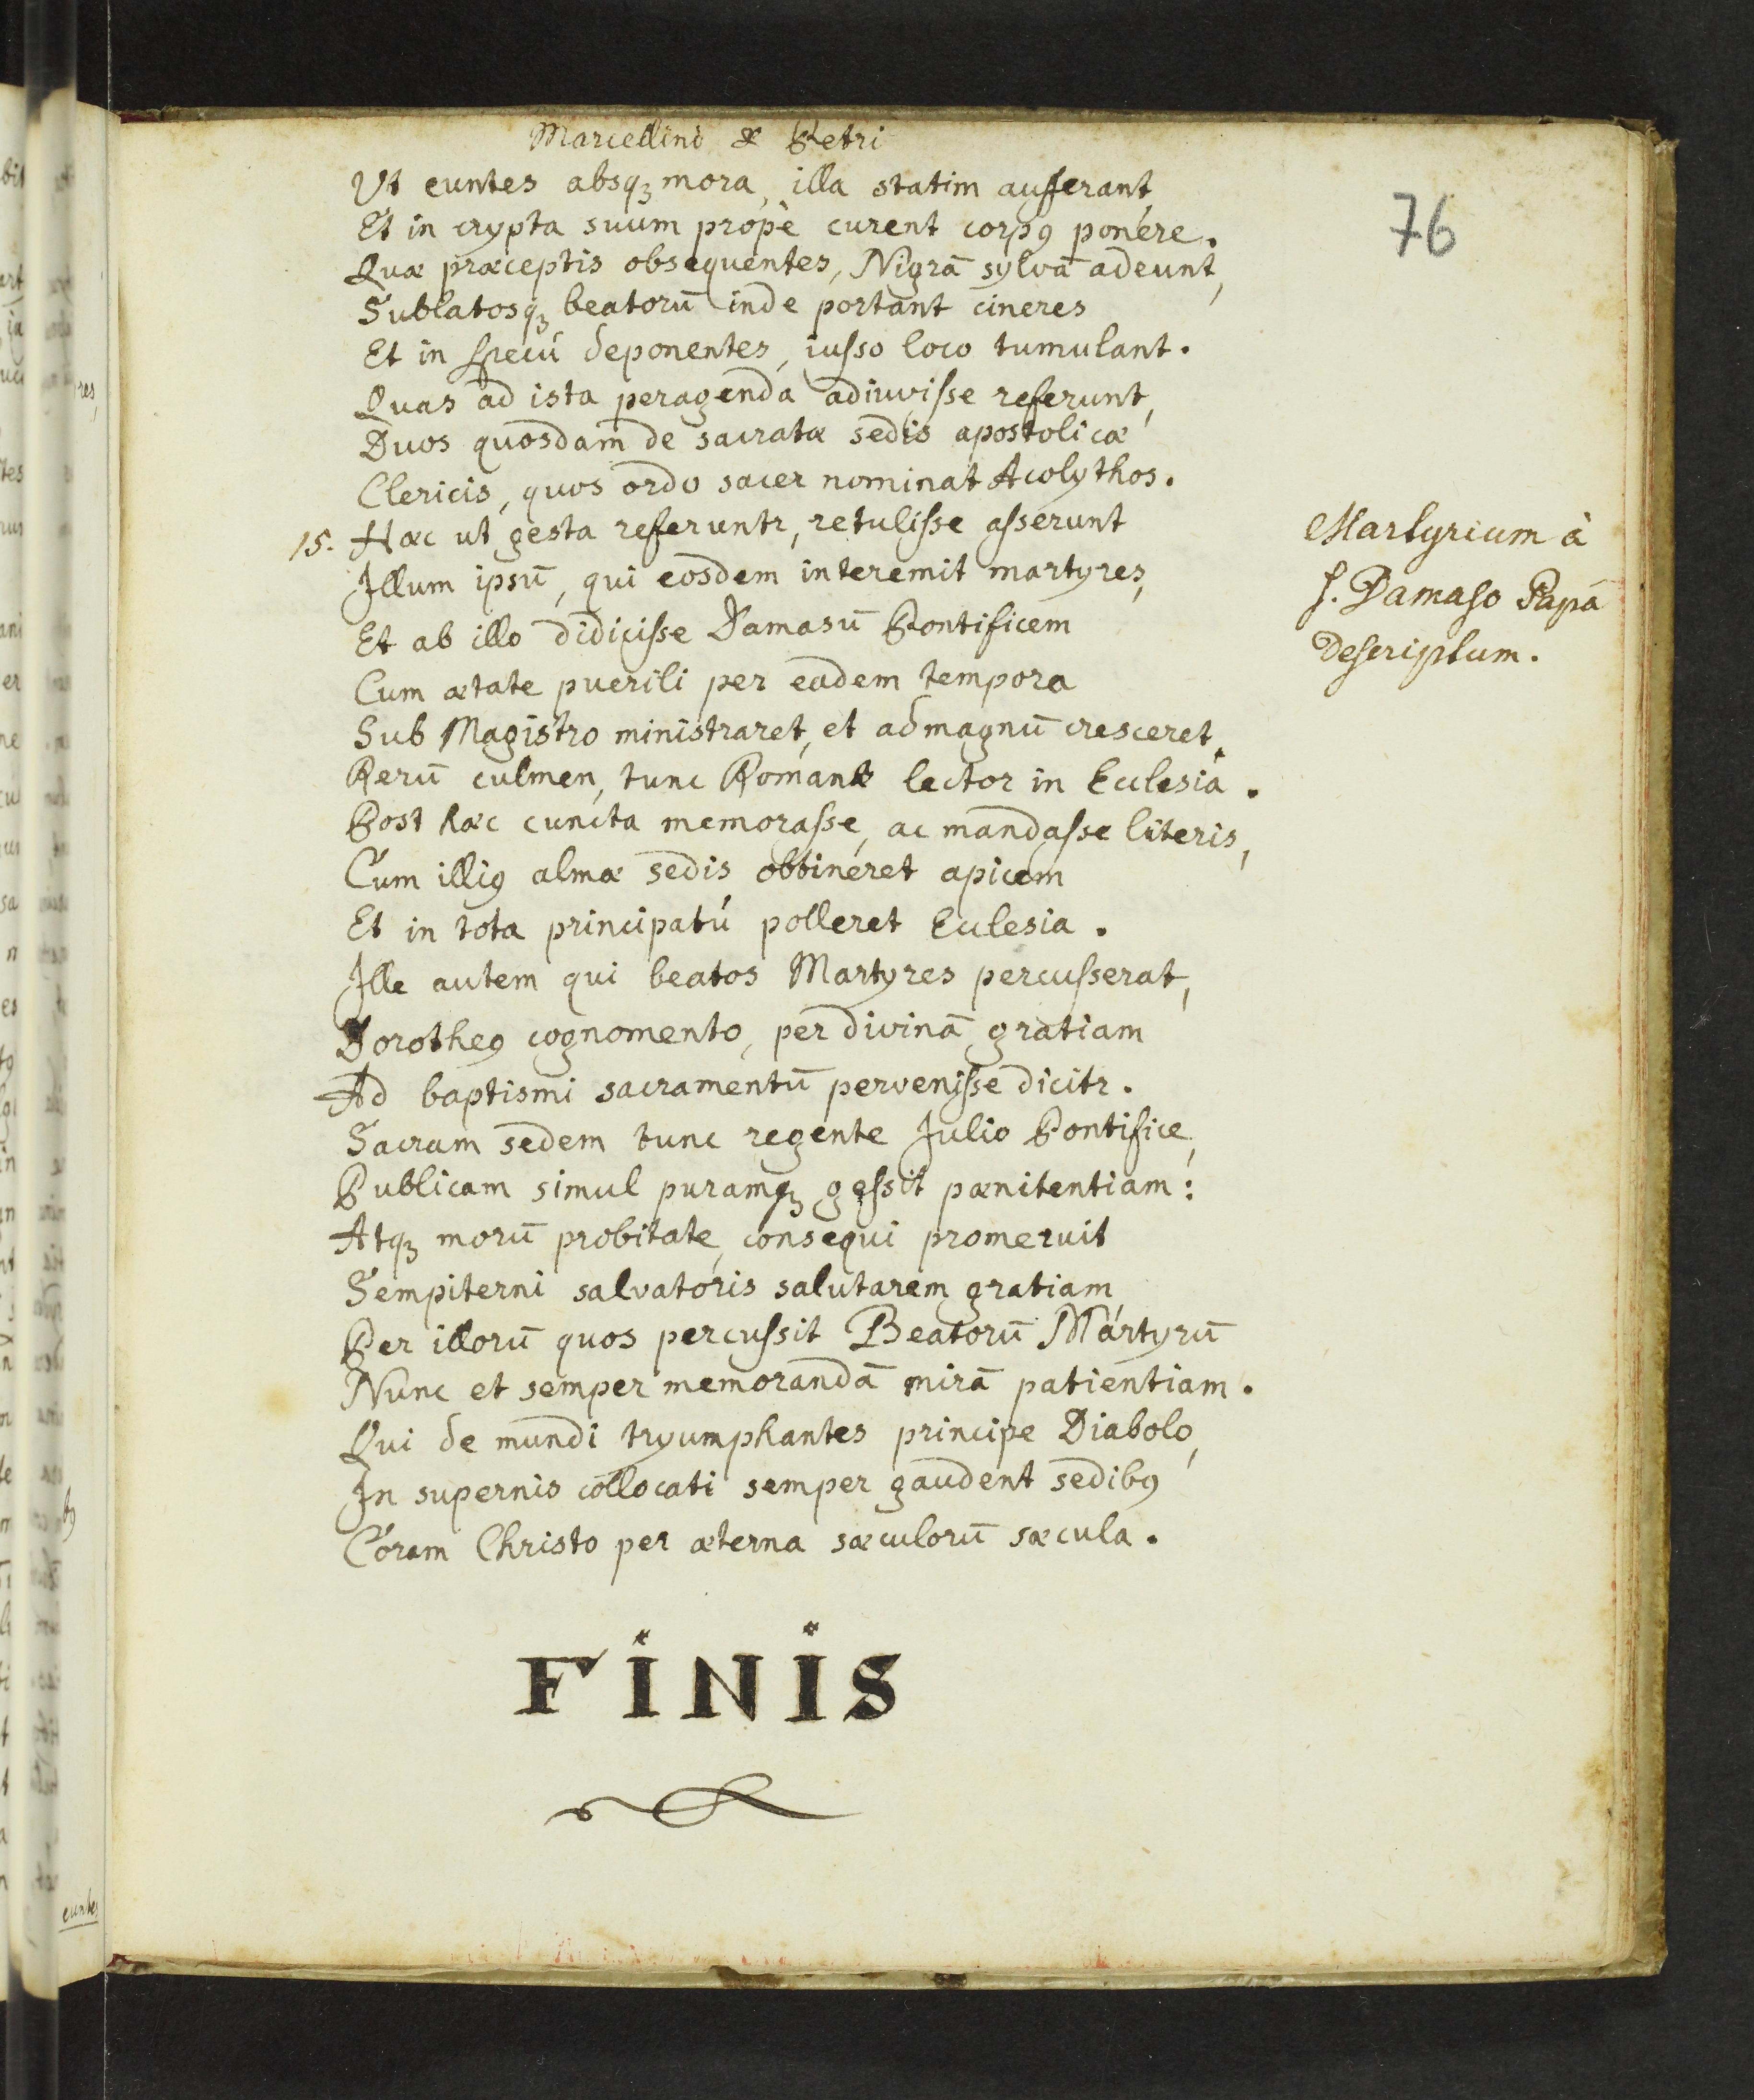 Marcellini & Petri
76
Ut euntes absqꝫ mora, illa statim aufferant,
Et in crypta suum propè curent corpꝰ ponere.
Quæ præceptis obsequentes, Nigrā sylvā adeunt,
Sublatosqꝫ beatorū inde portant cineres
Et in specū deponentes, iusso loco tumulant.
Quas ad ista peragenda adiuvisse referunt,
Duos quosdam de sacratæ sedis apostolicæ
Clericis, quos ordo sacer nominat Acolythos.
15. Hæc ut gesta referuntr, retulisse asserunt
Illum ipsū, qui eosdem interemit martyres,
Et ab illo didicisse Damasū Pontificem
Cum ætate puerili per eadem tempora
Sub Magistro ministraret, et ad magnū cresceret,
Rerū culmen, tunc Romanæ lector in Ecclesia.
Post hæc cuncta memorasse, ac mandasse literis,
Cum illiꝰ almæ sedis obtineret apicem
Et in tota principatú polleret Ecclesia.
Ille autem qui beatos Martyres percusserat,
Dorotheꝰ cognomento, per divinā gratiam
Ad baptismi sacramentū pervenisse dicitr.
Sacram sedem tunc regente Julio Pontifice,
Publicam simul puramqꝫ gessit pænitentiam:
Atqꝫ morū probitate, consequi promeruit
Sempiterni salvatoris salutarem gratiam
Per illorū quos percussit Beatorū Martyrū
Nunc et semper memorandā mirā patientiam.
Qui de mundi tryumphantes principe Diabolo,
In supernis collocati semper gaudent sedibꝰ
Coram Christo per æterna sæculorū sæcula.
FINIS
Martyrium à
S. Damaso Papâ
Descriptum.
euntes